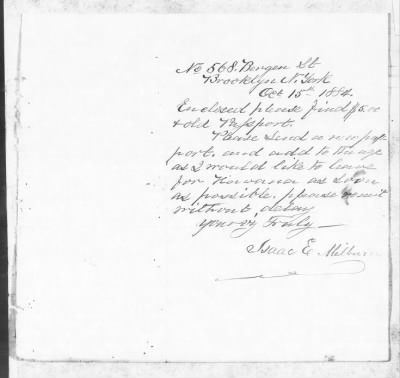 No 568. Bergen St
Brooklyn N. York
Oct 15th 1884.
Enclosed please find $5.00
& old Passport.
Please send a new pass
port. and add to the age
as I would like to leave
for Havana as soon
as possible. please remit
without delay
Yours Truly
Isaac E. Milburn